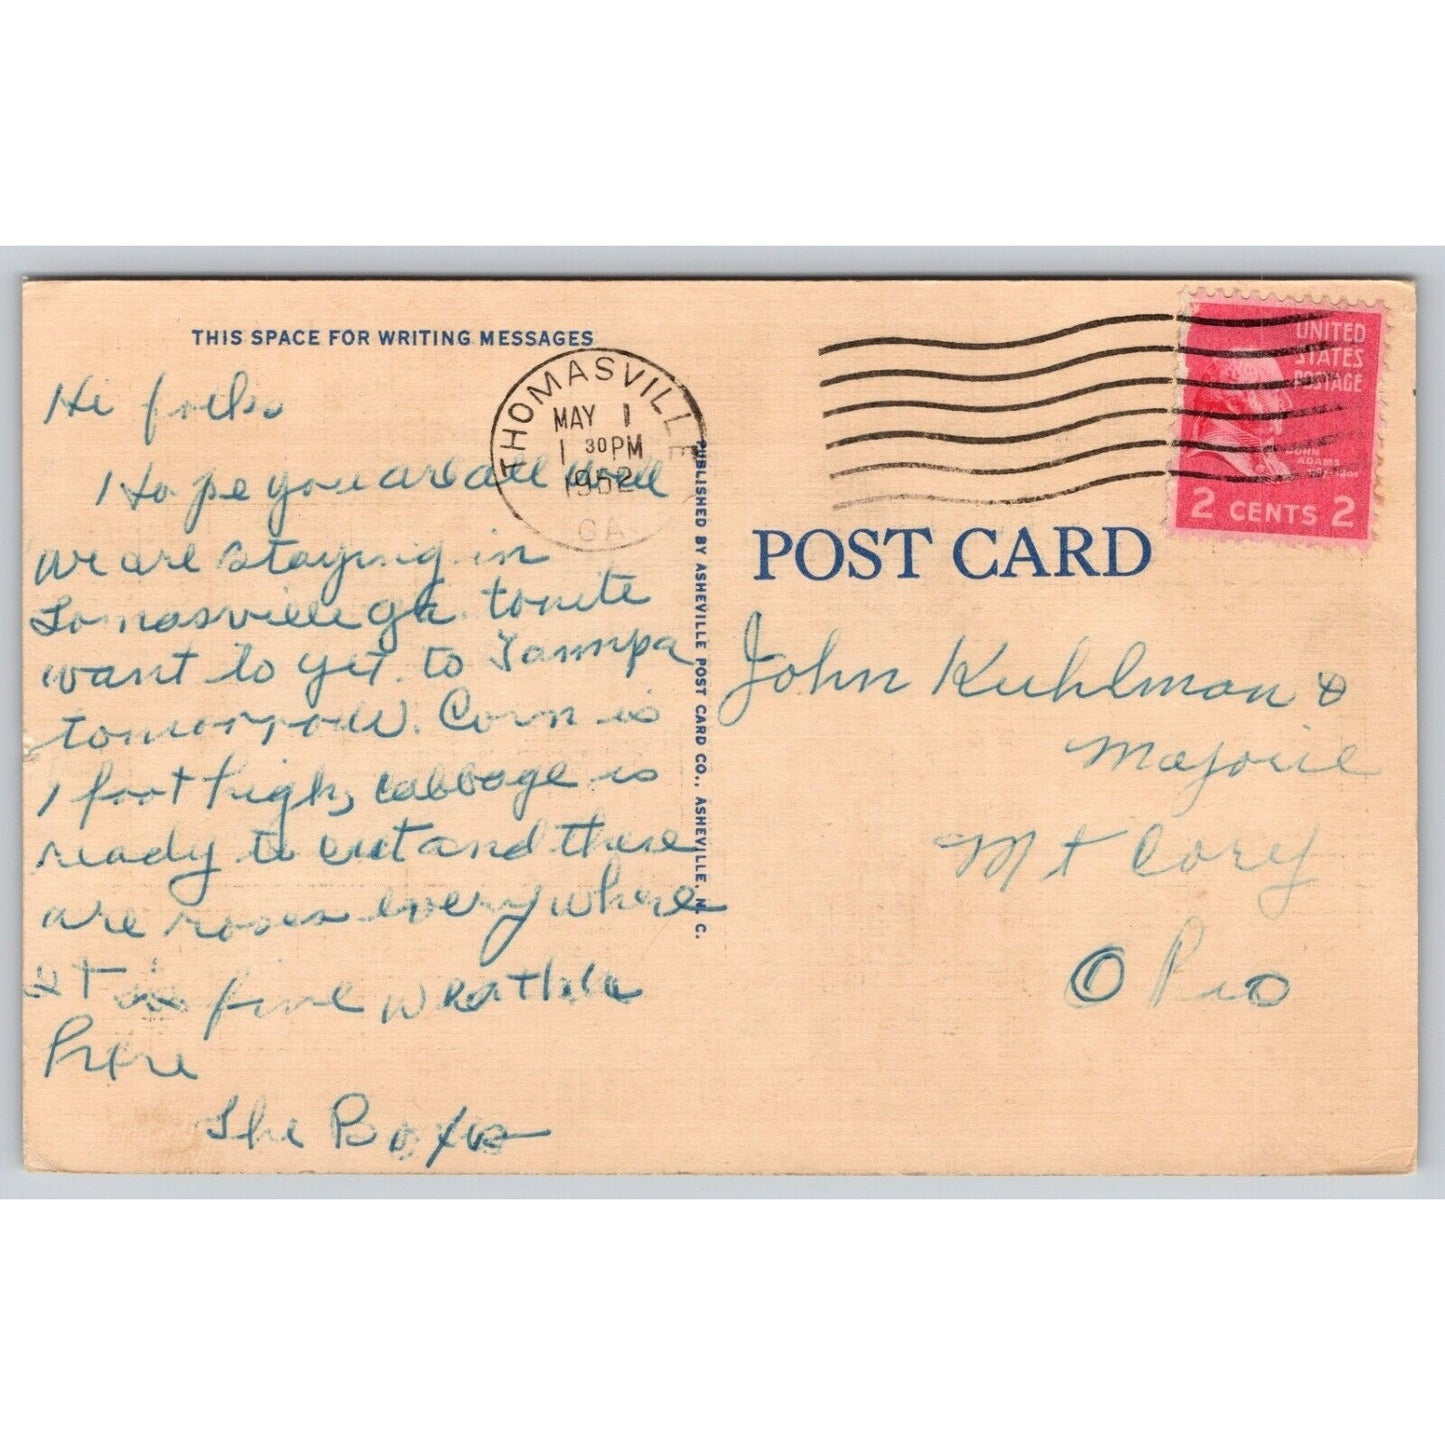 THIS SPACE FOR WRITING MESSAGES
Hi folks
I Hope you are all well
we are staying in
Tomasville ga. tonite
want to get to Tampa
tomorrow. Corn is
1 foot high, cabbage is
ready to cut and there
are roses everywhere
It is fine weather
here
The Boxes
THOMASVILLE
MAY 1
1 30 PM
1952
GA
PUBLISHED BY ASHEVILLE POST CARD CO., ASHEVILLE, N. C.
UNITED
STATES
POSTAGE
JOHN
ADAMS
2 CENTS 2
POST CARD
John Kuhlman &
Marjorie
Mt Cory
Ohio